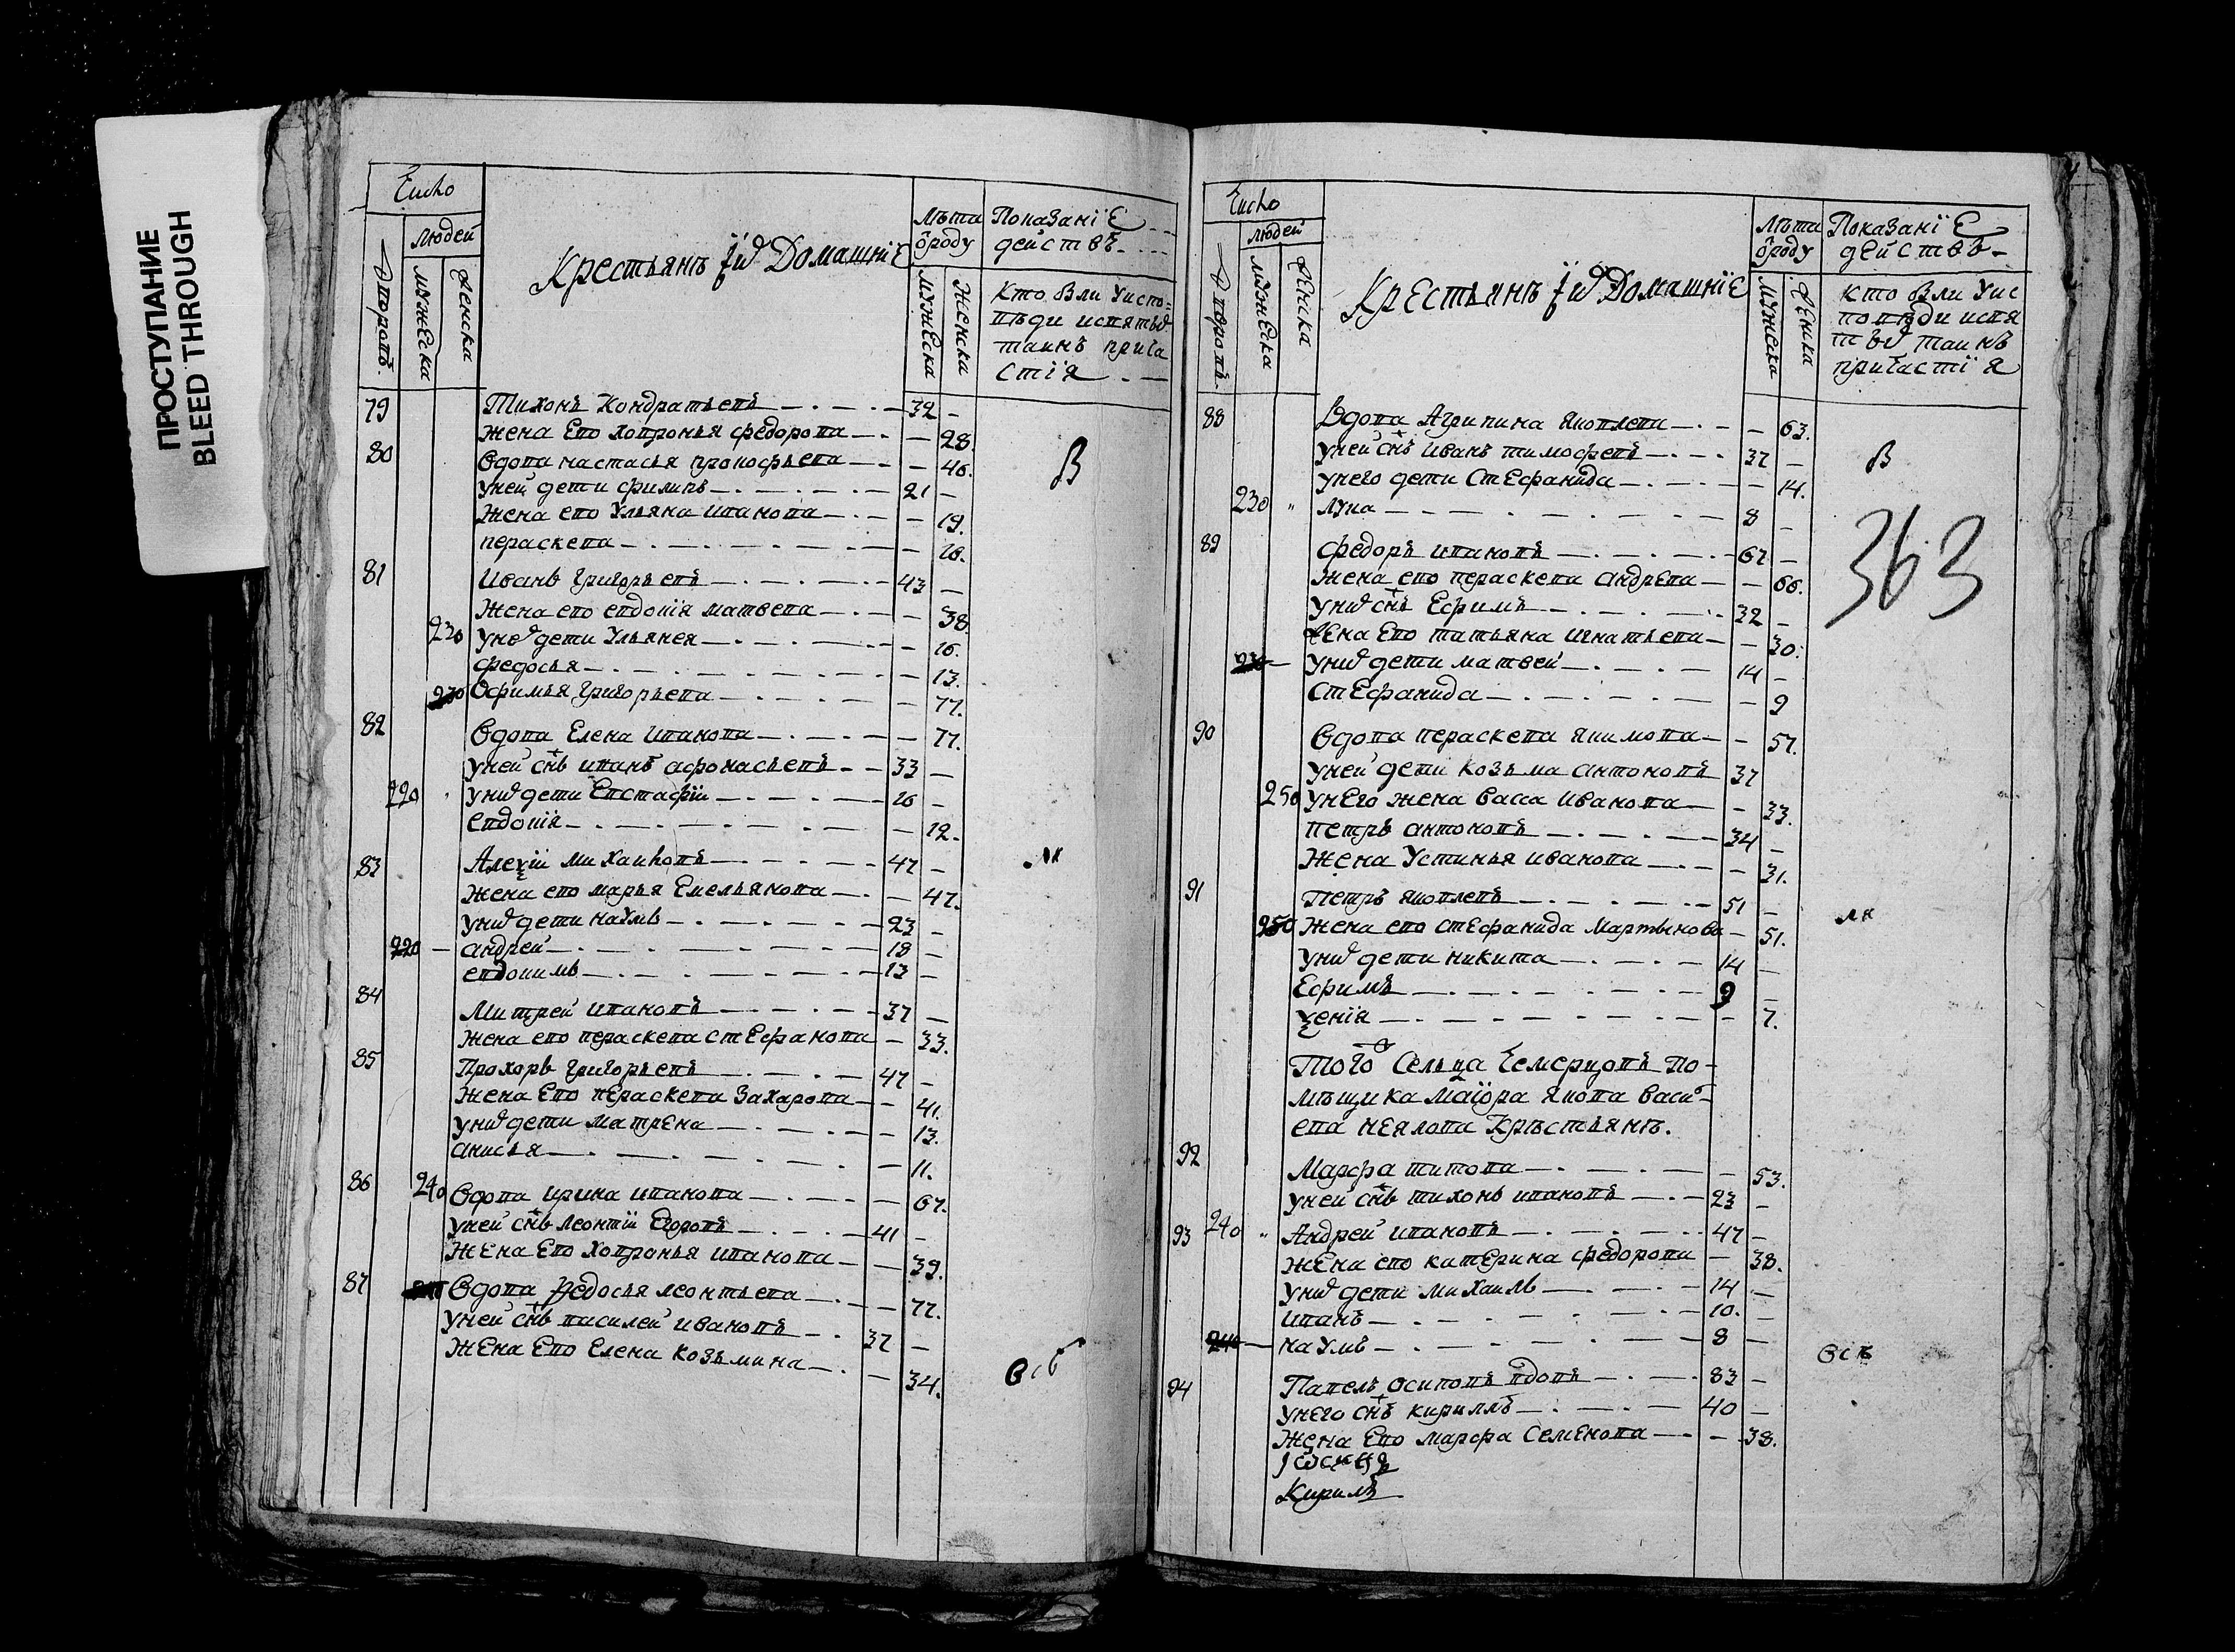 ПРОСТУПАНИЕ
BLEED THROUGH
Число
людей
дворовъ.
мужеска
женска
Крестьянъ їхъ Домашніе
Лѣта
ѿроду
мужеска
женска
Показаніе
действъ
кто были у испо=
вѣди и святыхъ
таинъ прича
стія
79 Тихонъ Кондратьевъ 32
жена ево ховронья федорова 28.
80 вдова настасья прокофьева 46.
у ней дети филипъ 21
жена ево ульяна иванова 19.
пераскева 16.
В
81 Иванъ григорьевъ 43
жена ево евдокія матвева 38.
230 у нихъ дети ульянея 16.
федосья 13.
230 Офимья григорьева 77.
82 вдова Елена иванова 77.
у ней снъ иванъ афонасьевъ 33
220 у нихъ дети Евстафїи 16
евдокія 12.
83 Алеѯїи михаиловъ 47
жена ево марья Емельянова 47.
у нихъ дети наумъ 23
220 андрей 18
евдокимъ 13
лк
84 митрей ивановъ 37
жена ево пераскева стефанова 33.
85 Прохоръ григорьевъ 47
жена ево пераскева захарова 41.
у нихъ дети матрена 13.
анисья 11.
86 240 вдова ирина иванова 67.
у ней снъ леонтїи Егоровъ 41
жена ево ховронья иванова 39.
87 вдова федосья леонтьева 77.
у ней снъ василей ивановъ 37
жена ево Елена козьмина 34.
Всѣ
Число
людей
дворовъ.
мужеска
женска
Крестьянъ їхъ Домашнїе
Лѣта
ѿроду
мужеска
женска
Показанїе
действъ
кто были у ис
повѣди и свя
тыхъ таинъ
причастїя
363
88 Вдова Агрипина яковлева 63.
у ней снъ иванъ тимофевъ 37
у него дети Стефанида 14.
230 лука 8
В
89 федоръ ивановъ 67
жена ево пераскева андрева 66.
у нихъ снъ Ефимъ 32
жена ево татьяна игнатьева 30.
230 у нихъ дети матвей 14
Стефанида 9
90 вдова пераскева якимова 57.
у ней дети козьма антоновъ 37
250 у него жена васса иванова 33.
петръ антоновъ 34
жена Устинья иванова 31.
91 Петръ яковлевъ 51
250 жена ево стефанида Мартынова 51.
у нихъ дети никита 14
Ефимъ 9
ѯенія 7.
лк
Того Сельца Чемерцовъ по-
мѣщика маїора якова васил-
ева неялова крѣстьянъ.
92 Марфа титова 53.
у ней снъ тихонъ ивановъ 23
93 240 Андрей ивановъ 47
жена ево катерина федорова 38.
у нихъ дети михаилъ 14
иванъ 10.
240 наумъ 8
Всѣ
94 Павелъ осиповъ вдовъ 83
у него снъ кириллъ 40
жена ево марфа Семенова 38.
Кирилъ